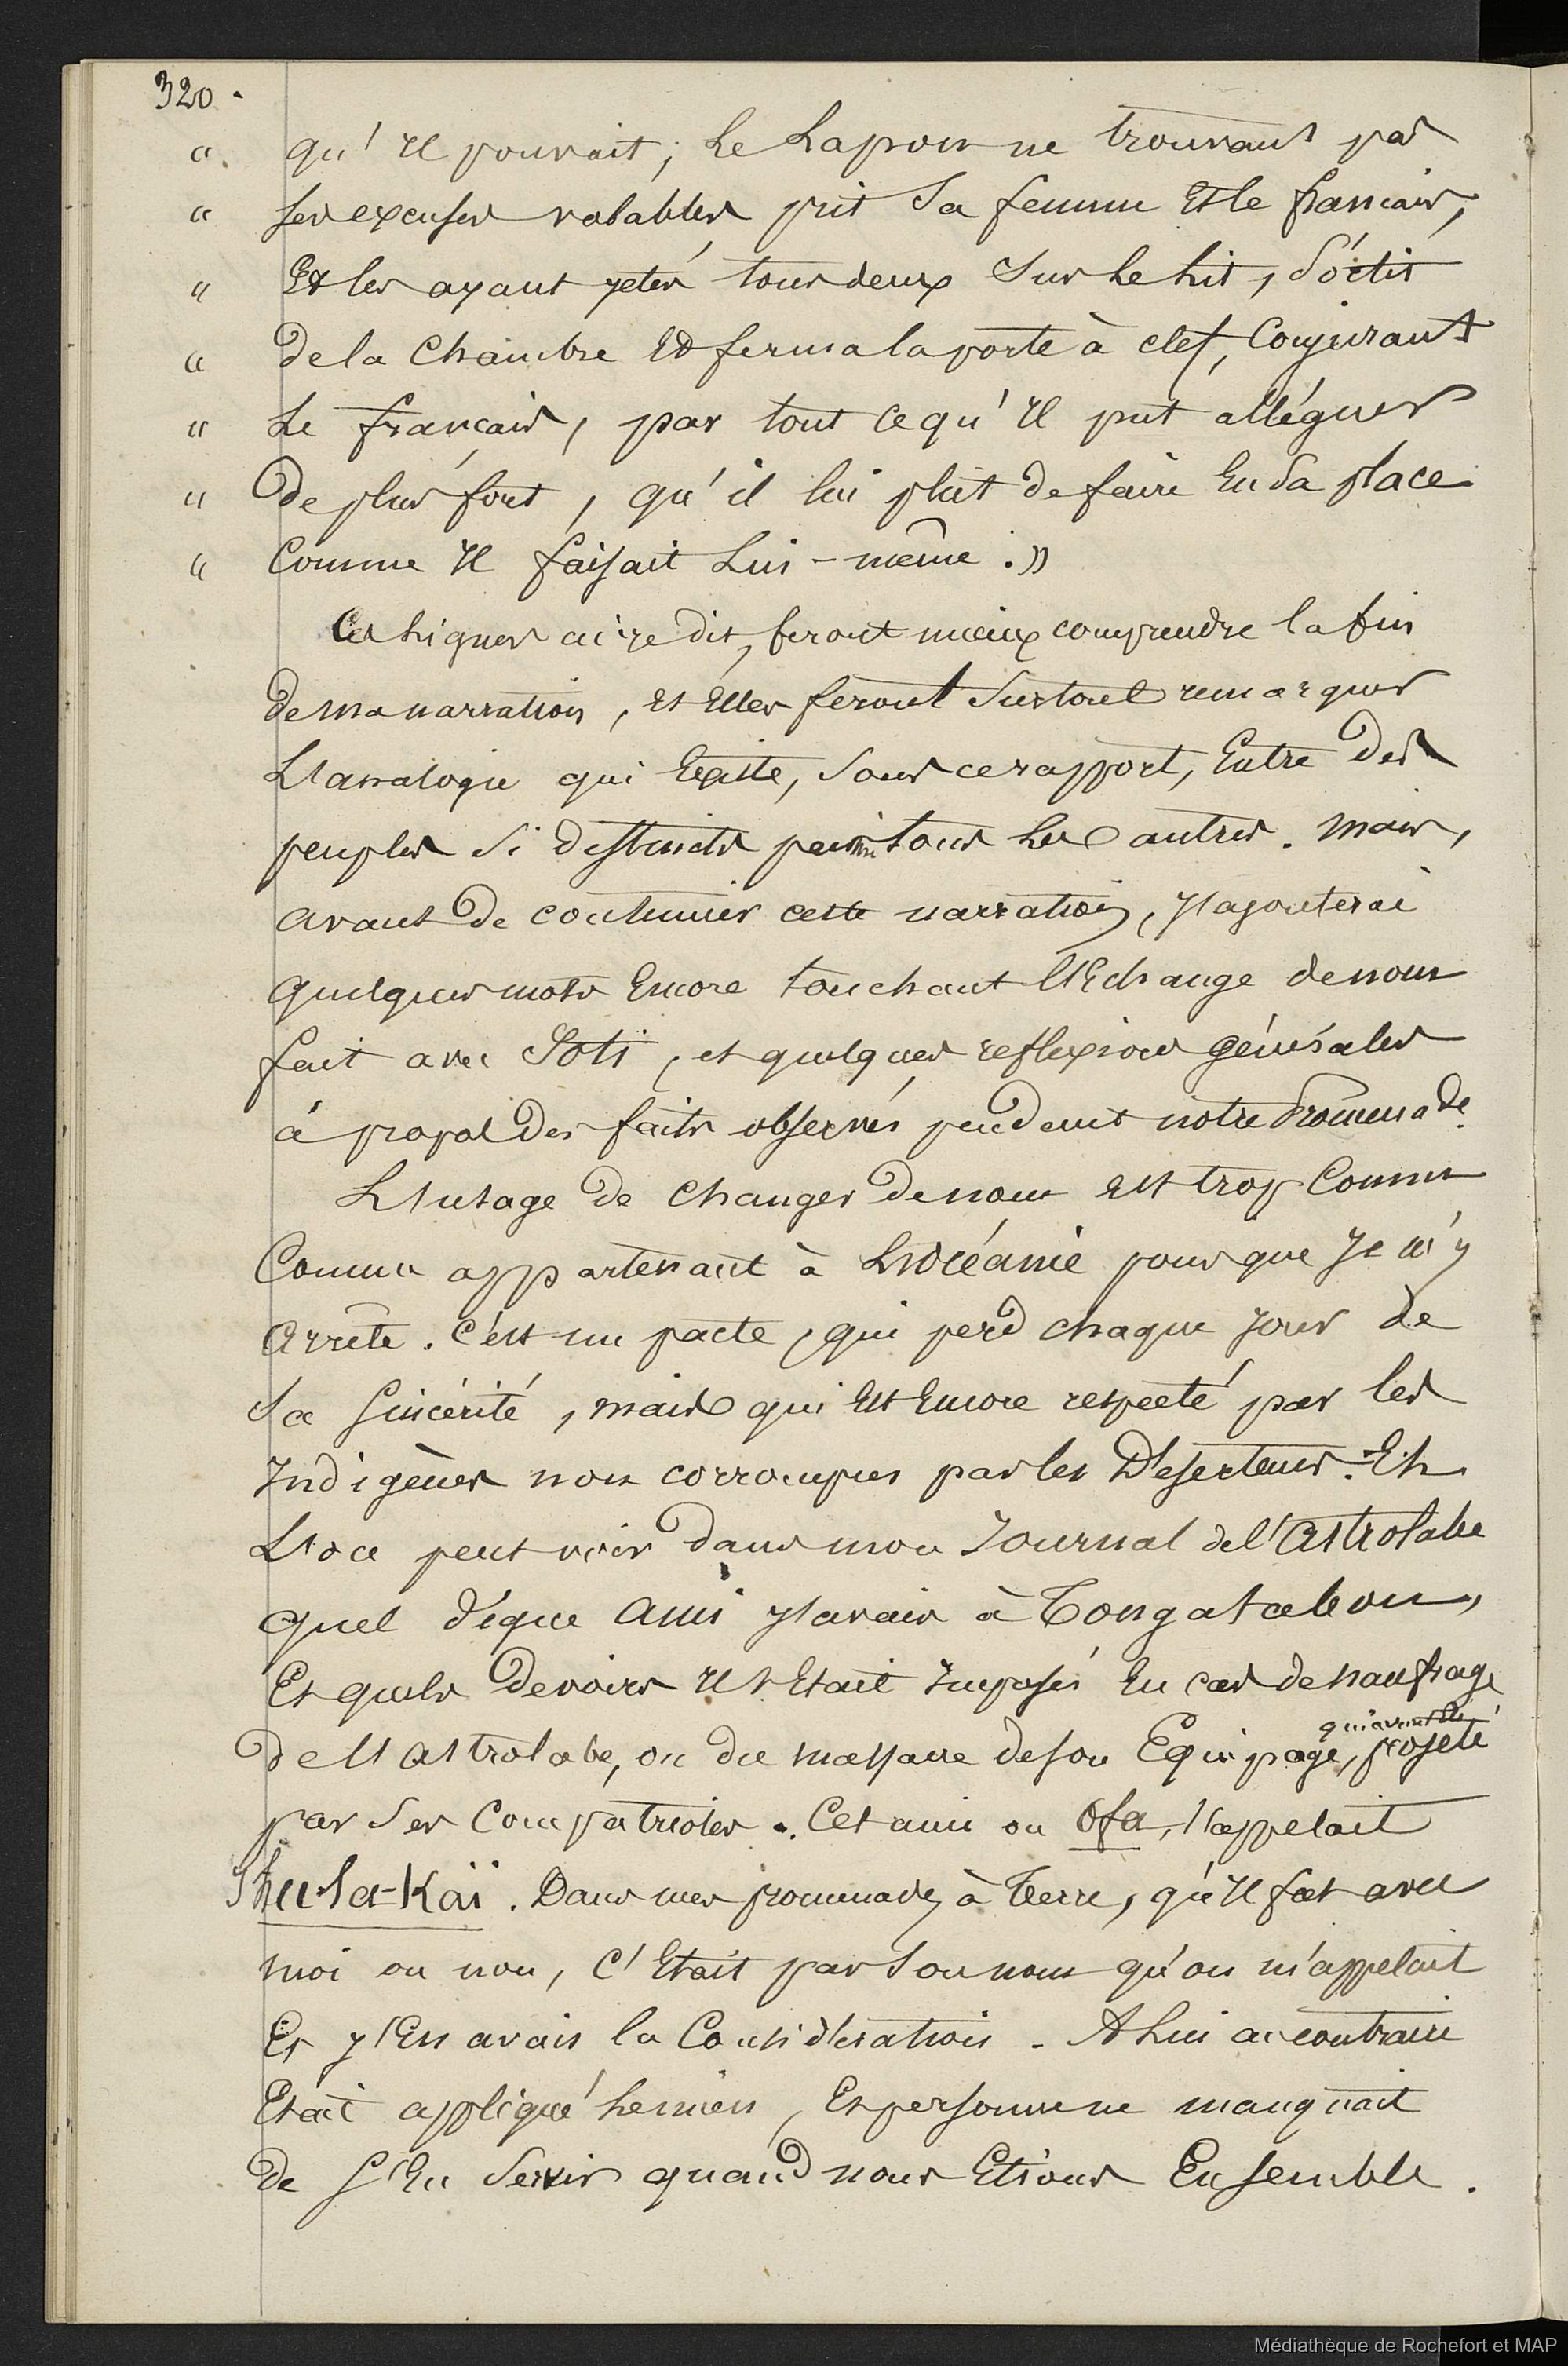 320.
" qu'il pouvait; Le Lapon ne trouvant pas
" ses excuses valables prit sa femme et le francais,
" Et les ayant jetés tous deux sur le lit, sortit
" de la chambre et ferma la porte à clef, conjurant
" Le français, par tout ce qu'il put alléguer
" de plus fort, qu'il lui plut de faire en sa place
" Comme il faisait lui-même."
Ces lignes ai-je dit, feront mieux comprendre la fin
de ma narration, et elles feront surtout remarquer
L'analogie qui existe, sous ce rapport, Entre des
peuples si distincts parmi tous les autres. Mais,
avant de continuer cette narration, j'ajouterai
quelques mots Encore touchant l'Echange de nom
fait avec Toti, et quelques reflexions générales
à propos des faits observés pendant notre promenade.
L'usage de changer de nom est trop connu
Comme appartenant à L'océanie pour que je m'y
arrête. C'est un pacte, qui perd chaque jour de
sa sincérité, mais qui est encore respecté par les
Indigènes non corrompus par les Déserteurs. Et
L'on peut voir dans mon Journal de l'Astrolabe
quel digne ami j'avais à Tongatabou,
Et quels devoirs il s'était imposés En cas de naufrage
de l'Astrolabe, ou du massacre de son Equipage, qui avait été projeté
par ses Compatriotes. Cet ami ou Ofa, s'appelait
-Kaï. Dans mes promenades à Terre, qu'il fut avec
moi ou non, C'était par son nom qu'on m'appelait
Et j'En avais la Considération. A Lui au contraire
Etait appliqué le mien, Et personne ne manquait
de s'En servir quand nous Etions Ensemble.
Médiathèque de Rochefort et MAP